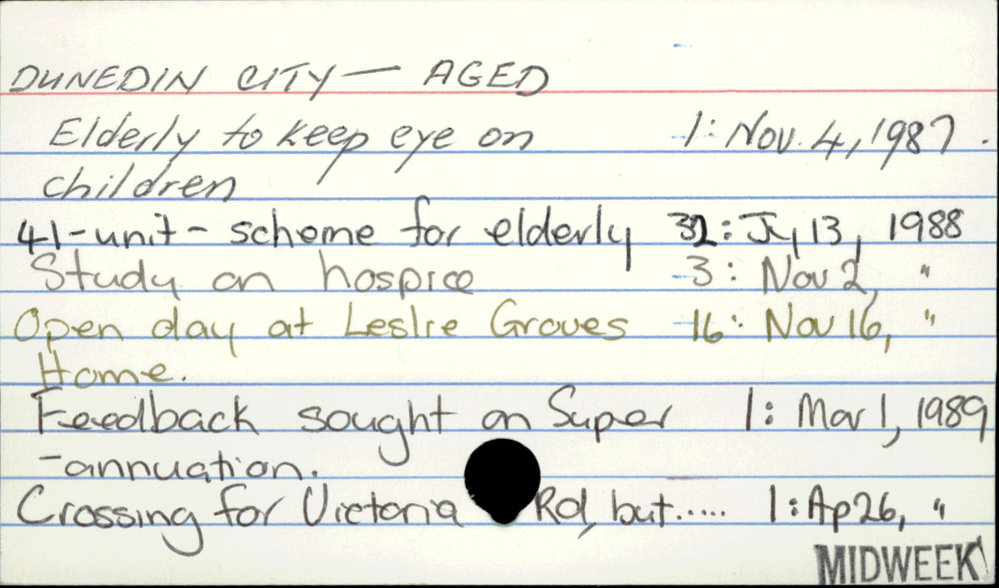 DUNEDIN CITY — AGED
Elderly to keep eye on 1: Nov. 4, 1987.
children
41-unit- scheme for elderly 32: Jy 13, 1988
Study on hospice 3: Nov 2, "
Open day at Leslie Groves 16: Nov 16, "
Home.
Feedback sought on Super 1: Mar 1, 1989
-annuation.
Crossing for Victoria Rd, but..... 1: Ap 26, "
MIDWEEK